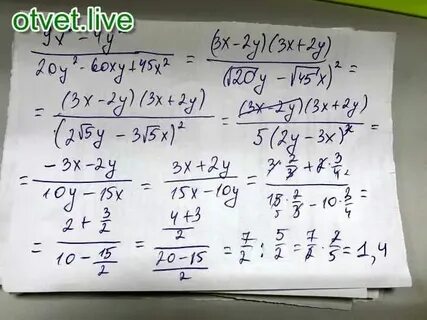 otvet.live
9x² - 4y² / 20y² - 60xy + 45x² = (3x - 2y)(3x + 2y) / (√20y - √45x)² =
= (3x - 2y)(3x + 2y) / (2√5y - 3√5x)² = (3x - 2y)(3x + 2y) / 5(2y - 3x)² =
= -3x - 2y / 10y - 15x = 3x + 2y / 15x - 10y = 3·2/3 + 2·3/4 / 15·2/3 - 10·3/4 =
= 2 + 3/2 / 10 - 15/2 = 4 + 3/2 / 20 - 15/2 = 7/2 : 5/2 = 7/2 · 2/5 = 1,4